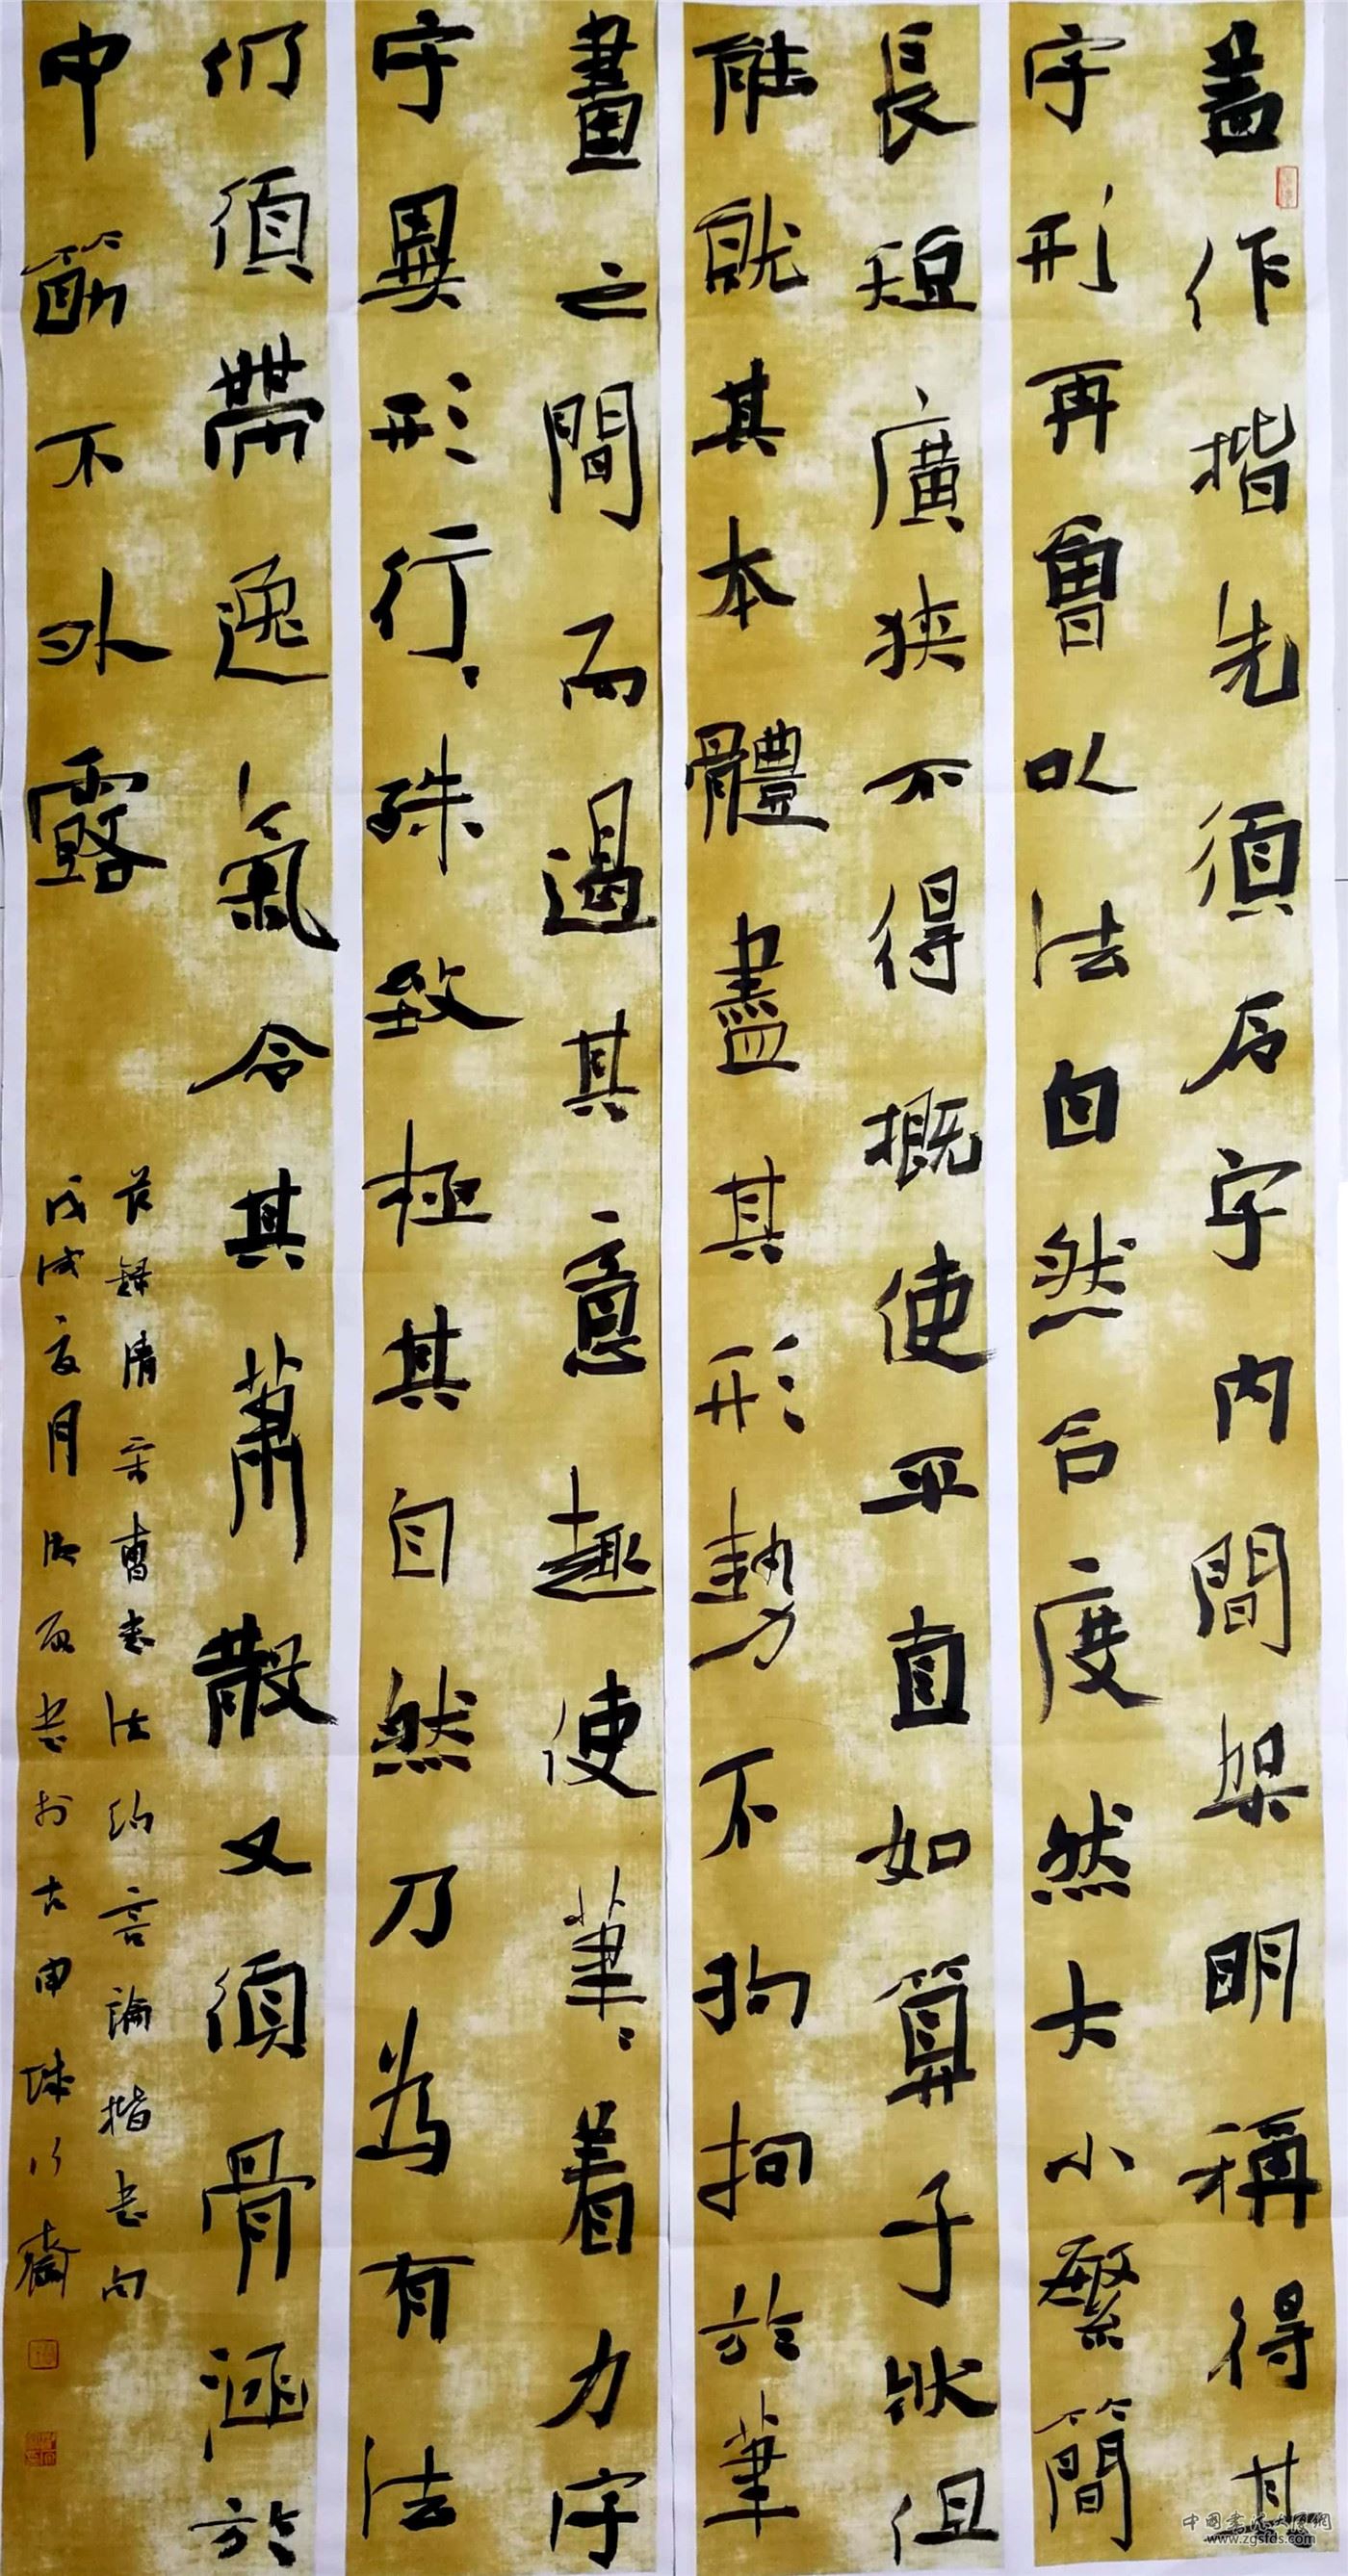 盖作楷先須令字内間架明稱得其
字形再會以法自然合度然大小繁簡
長短廣狭不得概使平直如算子狀但
能就其本體盡其形勢不拘拘於筆
畫之間而遏其意趣使筆、着力字
字異形行、殊致極其自然乃為有法
仍須帶逸氣令其蕭散又須骨涵於
中筋不外露
節錄清宋曹書法約言論楷書句
戊戌月書於古申城齋
www.zgsfds.com